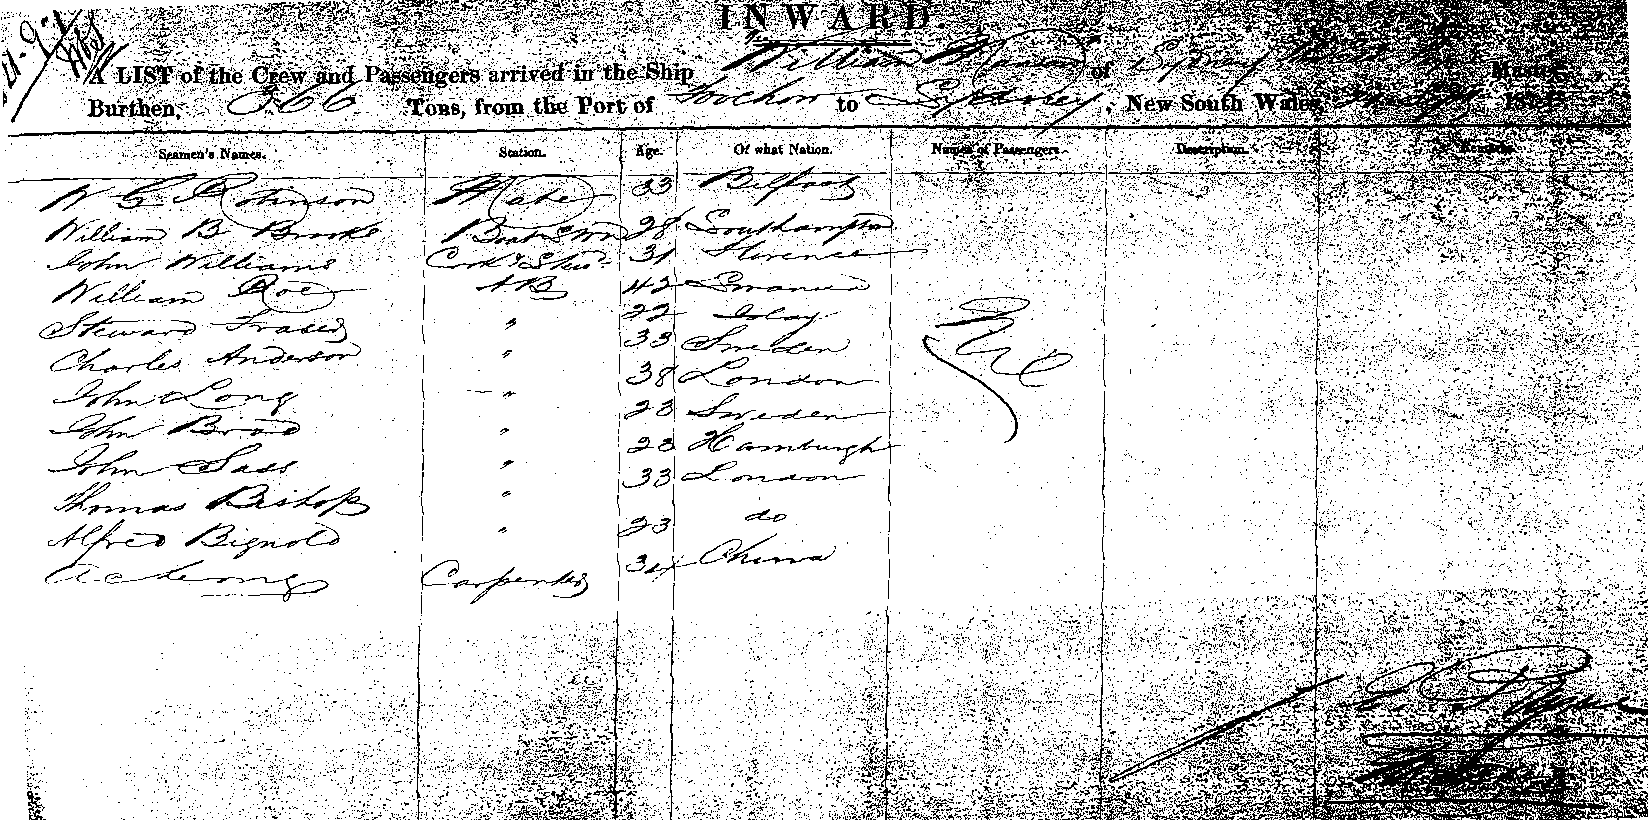 INWARD.
A LIST of the Crew and Passengers arrived in the Ship William Manson of Sydney Master,
Burthen, 366 Tons, from the Port of Foochow to Sydney, New South Wales,
Seamen's Names. Station. Age. Of what Nation. Names of Passengers. Description. Remarks.
W G Robinson Mate 33 Belfast
William B Brooks Boatswn 28 Southampton
John Williams Cook & Stwd 31 Florence
William Roe AB 42 Swansea
Steward Fraser " 22 Islay
Charles Anderson " 33 Sweden
John Long " 38 London
John Brod " 23 Sweden
John Sass " 23 Hamburgh
Thomas Bishop " 33 London
Alfred Bignold " 23 do
Carpenter China